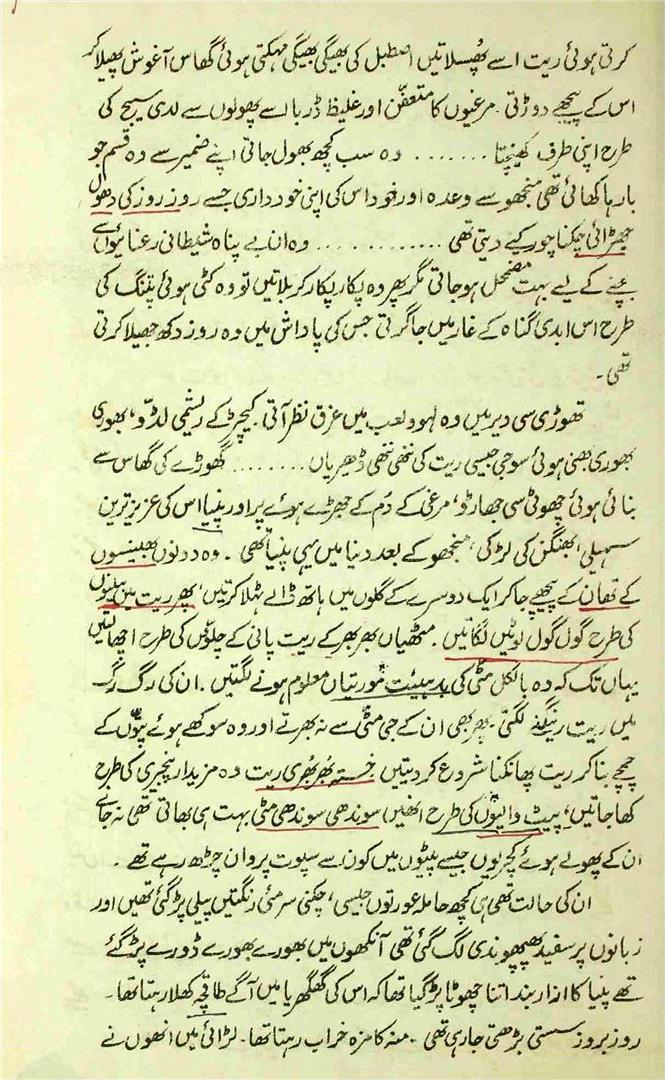 کرتی ہوئی ریت اسے پھسلاتیں اصطبل کی بھیگی بھیگی مہکتی ہوئی گھاس آغوش پھیلا کر
اس کے پیچھے دوڑتی۔ مرغیوں کا متعفّن اور غلیظ ڈربا اسے پھولوں سے لدی سیج کی
طرح اپنی طرف کھینچتا ....... وہ سب کچھ بھول جاتی اپنے ضمیر سے وہ قسم جو
بارہا کھائی تھی منجھو سے وعدہ اور خود اس کی اپنی خودداری جسے روز روز کی دھول
جھڑائی چکنا چور کیے دیتی تھی ............. وہ ان بے پناہ شیطانی رعنائیوں سے
بچنے کے لیے بہت مضمحل ہوجاتی مگر پھر وہ پکار پکار کر بلاتیں تو وہ کٹی ہوئی پتنگ کی
طرح اس ابدی گناہ کے غار میں جا گرتی جس کی پاداش میں وہ روز دکھ جھیلا کرتی
تھی۔
تھوڑی سی دیر میں وہ لہو و لعب میں غرق نظر آتی۔ کیچڑ کے ریشمی لڈو، بھوری
بھوری بھنی ہوئی سوجی جیسی ریت کی ننھی ننھی ڈھیریاں ........ گھوڑے کی گھاس سے
بنائی ہوئی چھوٹی سی جھاڑو، مرغی کے دُم کے جھڑے ہوئے پر اور پنیا اس کی عزیز ترین
سہیلی، بھنگن کی لڑکی، منجھو کے بعد دنیا میں یہی پنیا تھی۔ وہ دونوں بھینسوں
کے تھان کے پیچھے جاکر ایک دوسرے کے گلوں میں ہاتھ ڈالے ٹہلا کرتیں، پھر ریت میں بیلنوں
کی طرح گول گول لوٹیں لگاتیں۔ مٹھیاں بھر بھر کے ریت پانی کے چلوؤں کی طرح اچھالتیں
یہاں تک کہ وہ بالکل مٹی کی بدہیئت مورتیاں معلوم ہونے لگتیں۔ ان کی رگ رگ
میں ریت رینگنے لگتی۔ پھر بھی ان کے جی مٹی سے نہ بھرتے اور وہ سوکھے ہوئے پتوں کے
چمچے بنا کر ریت پھانکنا شروع کر دیتیں خستہ بھربھری ریت وہ مزیدار پنجیری کی طرح
کھا جاتیں، پیٹ والیوں کی طرح انھیں سوندھی سوندھی مٹی بہت ہی بھاتی تھی نہ جانے
ان کے پھولے ہوئے کچریوں جیسے پیٹوں میں کون سے سپوت پروان چڑھ رہے تھے۔
ان کی حالت تھی ہی کچھ حاملہ عورتوں جیسی، چکنی سرمئی رنگتیں پیلی پڑ گئی تھیں اور
زبانوں پر سفید پھپھوندی لگ گئی تھی آنکھوں میں بھورے بھورے ڈورے پڑ گئے
تھے پنیا کا ازاربند اتنا چھوٹا پڑ گیا تھا کہ اس کی گھگھریا میں آگے طاقچہ کھلا رہتا تھا۔
روز بروز سستی بڑھتی جارہی تھی۔ منہ کا مزہ خراب رہتا تھا۔ لڑائی میں انھوں نے